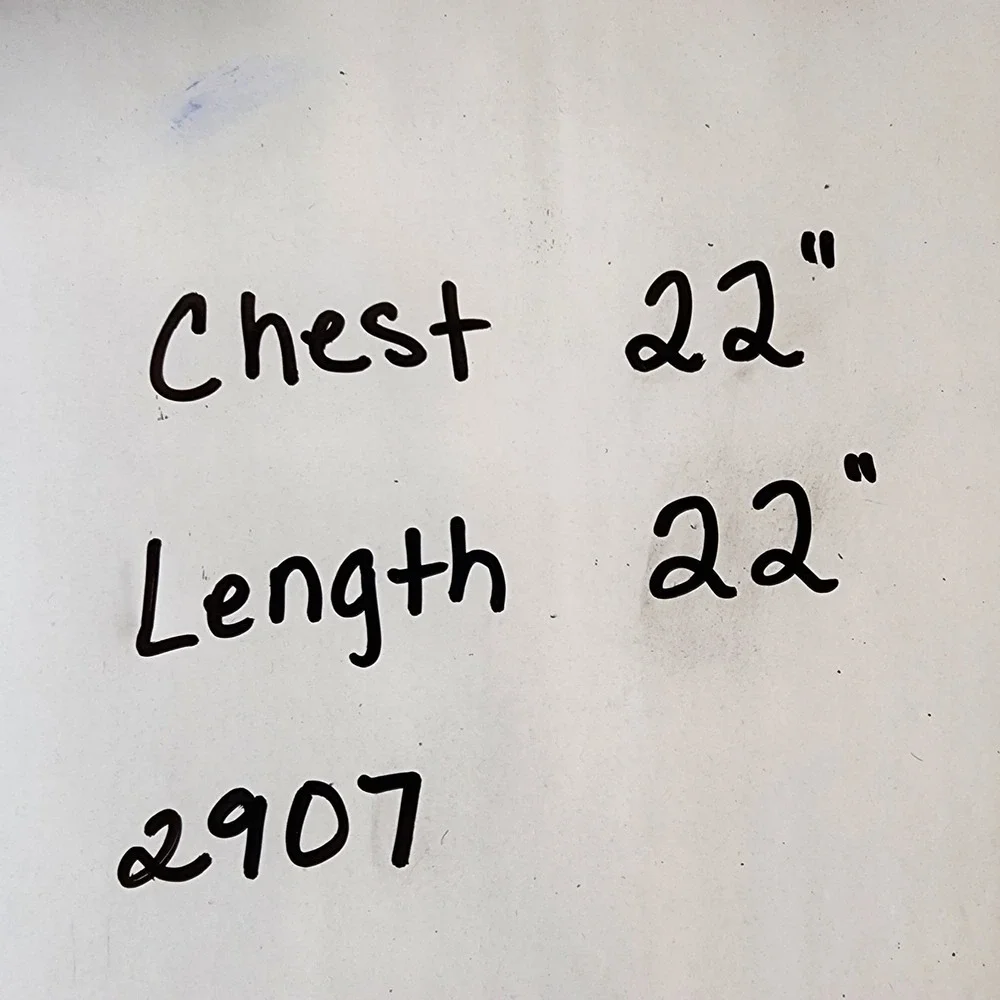 Chest 22"
Length 22"
2907